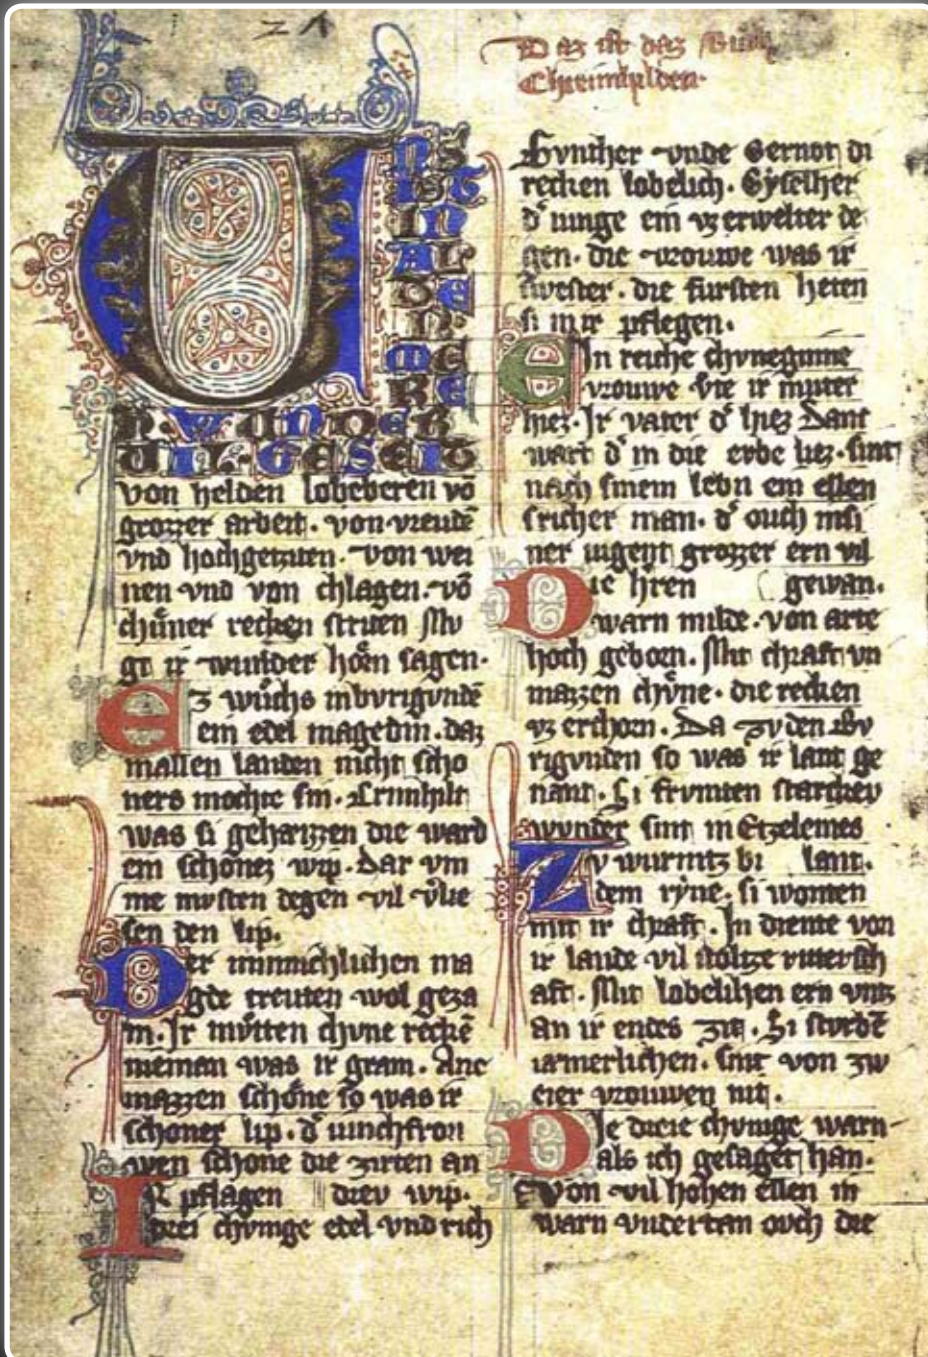 Daz ist daz Buch
Chreimhilden·
UNS
IST
IN
AL
DE
N
ME
RE
N·WUNDER
VIL GESEIT
von helden lobeberen vō
grozzer arbeit· von vreudē
vnd hochgetziten· von wei
nen vnd von chlagen· vō
chuͤner recken striten Mu
gt ir wunder hoͤrn sagen·
Ez wuͦchs inburigundē
ein edel magedin· daz
in allen landen nicht scho
ners mochte sin· Crimhilt
was si geheizzen die ward
ein schonez wip· Dar vm
me mvsten degen vil vlie
sen den lip·
Der minnichlichen ma
gde treuten wol geza
m· Ir muͤtten chvne reckē
nieman was ir gram· Ane
mazzen schone so was ir
schoner lip· d' iunchfrou
wen schone die zirten an
Ir pflagen drev wip·
drei chvnige edel vnd rich
Gvnther vnde Gernot di
recken lobelich· Gyselher
d' iunge ein vz erwelter de
gen· die vrouwe was ir
swester· die fursten heten
si in ir pflegen·
Ein reiche chvneginne
vrouwe vͦte ir muter
hiez· Ir vater d' hiez Danc
wart d' in die erbe liez· sint
nach sinem lebn ein ellen
sricher man· d' ouch in si
ner iugent grozzer ern vil
Die hren gewan·
warn milde· von arte
hoch geborn· Mit chraft vn
mazzen chvͤne· die recken
vz erchorn· Da zv den Bv
rigvnden so was ir lant ge
nant· Si frvmten starchev
wunder sint in Etzelemes
Zv wurmtz bi lant·
dem ryne· si wonten
mit ir chraft· In diente von
ir lande vil stoltze rittersch
aft· Mit lobelihen ern vntz
an ir endes zit· Si sturbē
iamerlichen· sint von zw
eier vrouwen nit·
Die dreie chvnige warn
als ich gesaget han·
Von vil hohen ellen in
warn vndertan ovch die